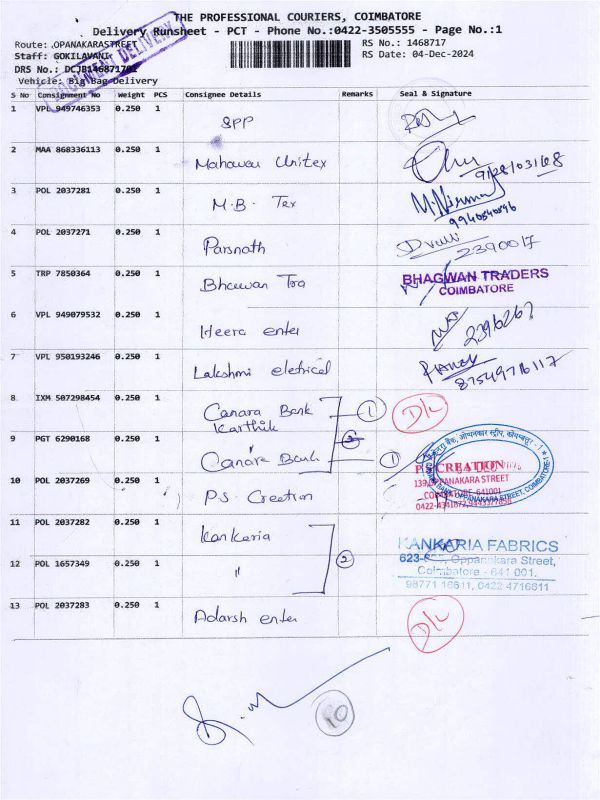 THE PROFESSIONAL COURIERS, COIMBATORE
Delivery Runsheet - PCT - Phone No.:0422-3505555 - Page No.:1
Route: .OPANAKARASTREET
RS No.: 1468717
Staff: GOKILAVANI
RS Date: 04-Dec-2024
DRS No.: DCJB1468717
DELIVERY
Vehicle: Big Bag Delivery
S No Consignment No Weight PCS Consignee Details Remarks Seal & Signature
1 VPL 949746353 0.250 1 SPP
2 MAA 868336113 0.250 1 Mahaveer Unitex
3 POL 2037281 0.250 1 M.B. Tex M.Nirmal
9940540596
4 POL 2037271 0.250 1 Parsnath 2390017
5 TRP 7850364 0.250 1 Bhawan Tra BHAGWAN TRADERS
COIMBATORE
6 VPL 949079532 0.250 1 Heera enter
7 VPL 950193246 0.250 1 Lakshmi eletrical
8 IXM 507298454 0.250 1 Canara Bank ① D/L
Karthik
9 PGT 6290168 0.250 1 Canara Bank ①
P.S CREATION
139, OPPANAKARA STREET
COIMBATORE-641001
10 POL 2037269 0.250 1 P.S. Creation
11 POL 2037282 0.250 1 Kankaria KANKARIA FABRICS
12 POL 1657349 0.250 1 " ② Oppanakara Street,
Coimbatore - 641 001.
98771 16611, 0422 4716611
13 POL 2037283 0.250 1 Adarsh enter D/L
10